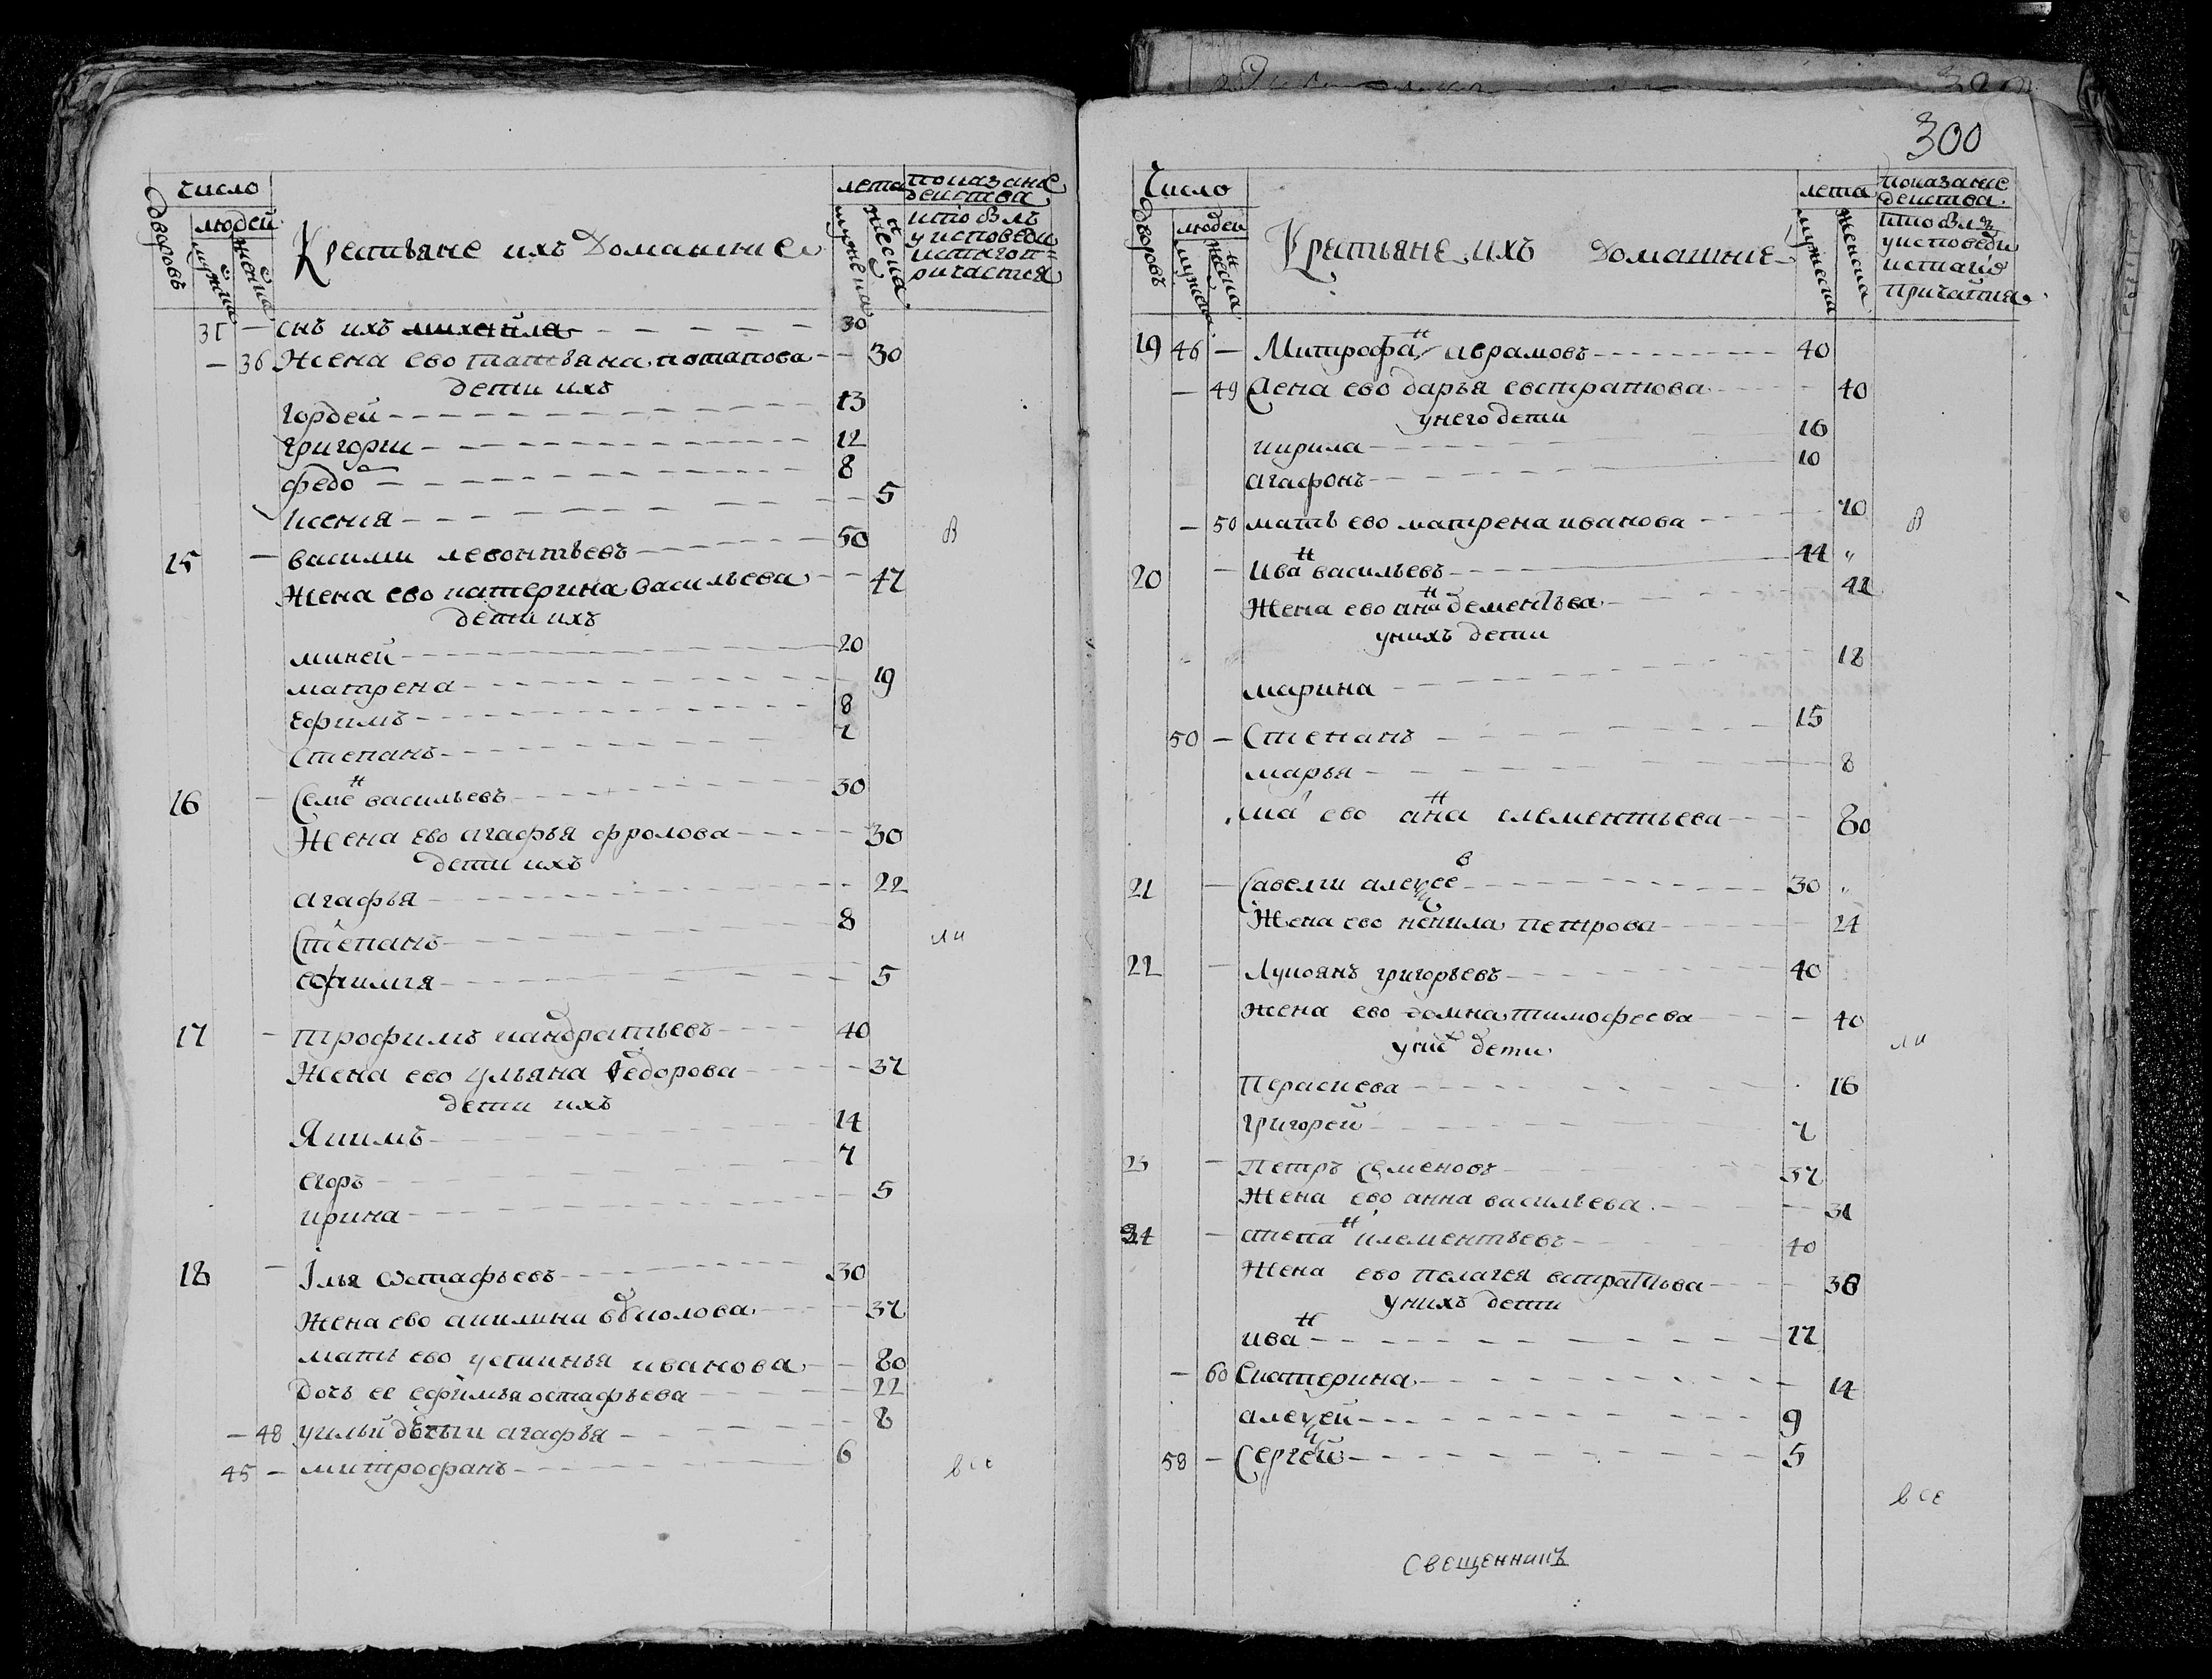 число
лета
показание действа
дворовъ
людей
мужеска
женска
Крестьяне ихъ Домашние
мужеска
женска
кто былъ у исповеди и с̃таго причастия
31 — снъ ихъ михайла 30
— 36 Жена ево татьяна потапова 30
дети ихъ
гордей 13
григории 12
федо 8
ксения 5
15 — васили левонтьевъ 50 в
Жена ево катерина васильева 47
дети ихъ
миней 20
матрена 19
ефимъ 8
Степанъ 7
16 — Семен васильевъ 30
Жена ево агафья фролова 30
дети ихъ
агафья 22
Степанъ 8 ли
ефимия 5
17 — трофимъ кандратьевъ 40
Жена ево ульяна федорова 37
дети ихъ
Якимъ 14
егоръ 7
ирина 5
18 — Iлья остафьевъ 30
Жена ево акилина 37
мать ево устинья иванова 80
дочь ее ефимья остафьева 22
— 48 агафья 8
45 — митрофанъ 6 все
300
Число
лета
показание действа
дворовъ
людей
мужеска
женска
Крестьяне ихъ Домашние
мужеска
женска
кто былъ у исповеди и с̃таго причастия
19 46 — Митрофан аврамовъ 40
— 49 Жена ево дарья евстратова 40
у него дети
кирила 16
агафонъ 10
— 50 мать ево матрена иванова 70 в
20 — Иван васильевъ 44
Жена ево анна дементьева 42
у нихъ дети
марина 18
50 — Степанъ 15
марья 8
ма ево анна клементьева 80
21 — Савели алексеев 30
Жена ево ненила петрова 24
22 — Лукоянъ григорьевъ 40
жена ево домна тимофеева 40
у них дети ли
Пераскева 16
григорей 7
23 — Петръ Семеновъ 37
Жена ево анна васильева 31
24 — степан клементьевъ 40
Жена ево пелагея евстратьова 38
у нихъ дети
иван 22
— 60 Екатерина 14
алексей 9
58 — Сергей 5
все
Свещенникъ